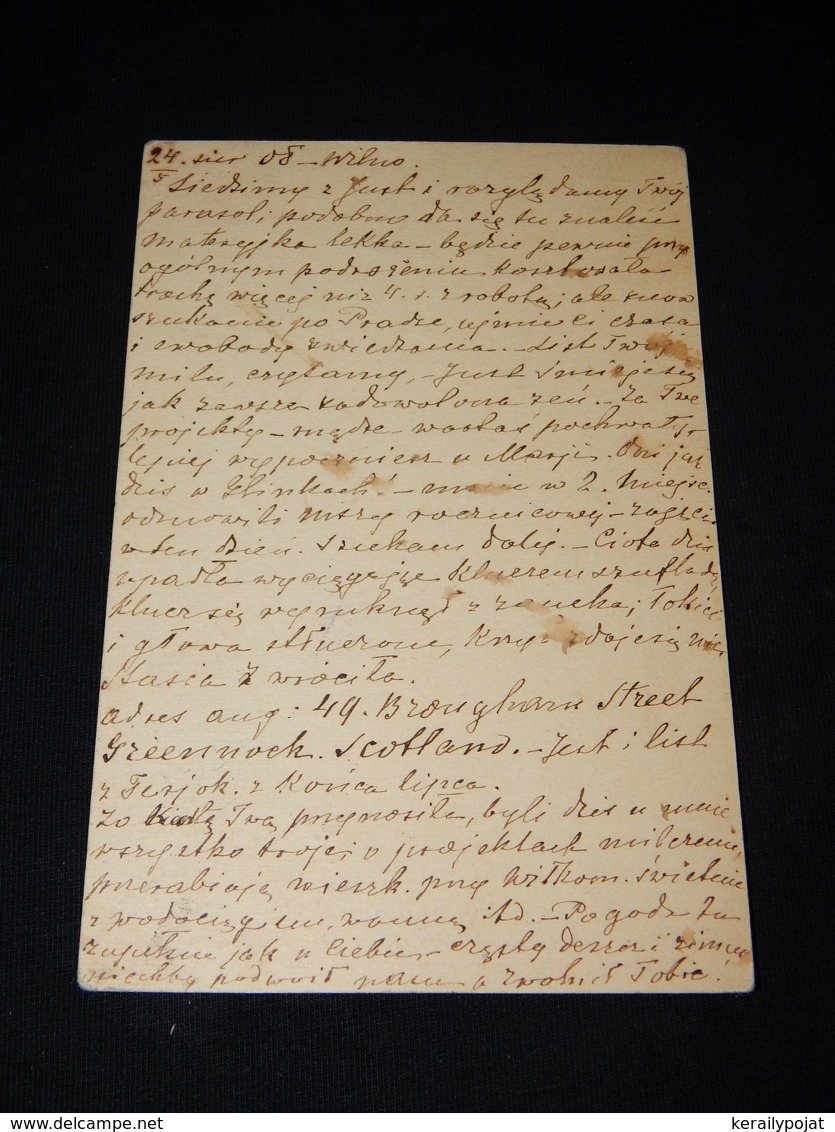 24. sier 08 – Wilno.
5
Siedzimy z Just i rozglądamy Twój
parasol; podobno da się tu znaleść
materyjka lekka – będzie pewnie przy
ogólnym podrożeniu kosztowała
trochę więcej niż 4. r. z robotą; ale
szukanie po Pradze, ujmie Ci czasu
i swobody zwiedzania. – List Twój
miły, czytamy, – Just śmieje się
jak zawsze zadowolona zeń. – Za Twe
projekty – mądre wartaś pochwały,
lepiej wypoczniesz u Maryi. Oni już
dziś w Glinkach! – w 2. miejsc.
odmówili mszę rocznicową –
w ten dzień. Szukam dalej. – Ciota dziś
upadła wyciągając kluczem szufladę,
klucz się wymknął z zamka; łokieć
i głowa stłuczone, krzyż zdaje się nie.
Stasia wróciła.
adres ang: 49. Brougham Street
Greennock. Scotland. – Jest i list
z Terjok. z końca lipca.
Zo Twą przynosiła, byli dziś u mnie
wszystko troje; o projektach milczenie,
przerabiają mieszk. przy Wiłkom. świetnie
z wodociągiem, wanną itd. – Pogoda tu
zupełnie jak u Ciebie – częsty deszcz i zimno
niechby podwoił nam a zwolnił Tobie!
www.delcampe.net
kerailypojat